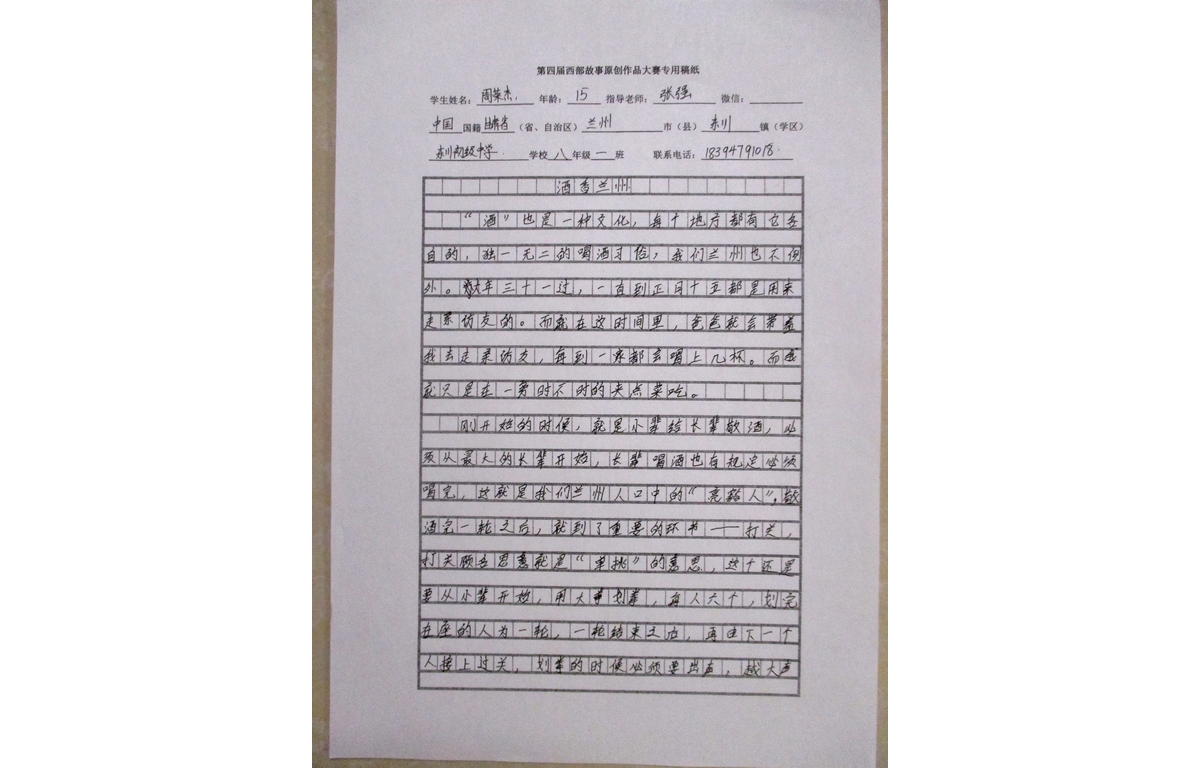 第四届西部故事原创作品大赛专用稿纸
学生姓名：周荣杰 年龄：15 指导老师：张强 微信：
中国 国籍 甘肃省（省、自治区）兰州 市（县）东川 镇（学区）
东川初级中学 学校 八 年级 一 班 联系电话：18394791018
酒香兰州
“酒”也是一种文化，每个地方都有它各
自的，独一无二的喝酒习俗，我们兰州也不例
外。大年三十一过，一直到正月十五都是用来
走亲访友的。而就在这时间里，爸爸就会带着
我去走亲访友，每到一家都会喝上几杯。而我
就只是在一旁时不时的夹点菜吃。
刚开始的时候，就是小辈给长辈敬酒，必
须从最大的长辈开始，长辈喝酒也有规定必须
喝完，这就是我们兰州人口中的“亮豁人”。敬
酒完一轮之后，就到了重要的环节——打关，
打关顾名思意就是“单挑”的意思，这个还是
要从小辈开始，用大拳划拳，每人六个，划完
在座的人为一轮，一轮结束之后，再由下一个
人接上过关，划拳的时候必须要出声，越大声